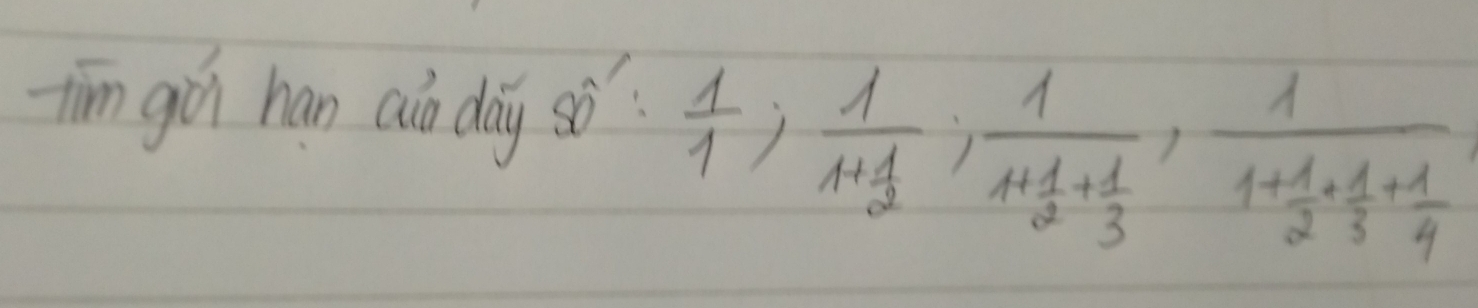 Tìm giới hạn của dãy số: 1/1; 1/(1+1/2); 1/(1+1/2+1/3), 1/(1+1/2+1/3+1/4),